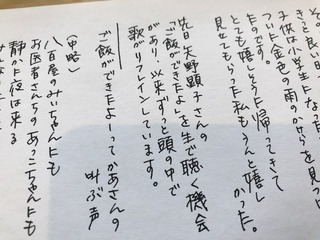 子供は小学生
ついた金色の雨の
を見つ
たのです。
とても嬉しそうに帰ってきて
見せてもらった私もうんと嬉しかった。
先日、矢野顕子さんの
「ご飯ができたよ」を生で聴く機会
があり、以来ずっと頭の中で
歌がリフレインしています。
ご飯ができたよーってかあさんの
叫ぶ声
(中略)
八百屋のみいちゃんにも
お医者さんちのあっこちゃんにも
静かな夜は来る